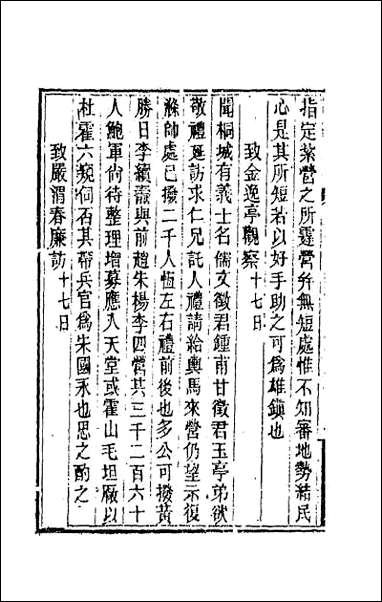 指定紮營之所霆營弁無短處惟不知審地勢結民
心是其所短若以好手助之可爲雄鎭也
致金逸亭觀察十七日
聞桐城有義士名儒文徵君鍾甫甘徵君玉亭弟欲
敬禮延訪求仁兄託人禮請給輿馬來營仍望示復
滌帥處已撥二千人恆左右禮前後也多公可撥黃
勝日李續燾與前趙朱楊李四營共三千二百六十
人鮑軍尙待整理增募應入天堂或霍山毛坦厰以
杜霍六窺伺否其帶兵官爲朱國永也思之酌之
致嚴渭春廉訪十七日